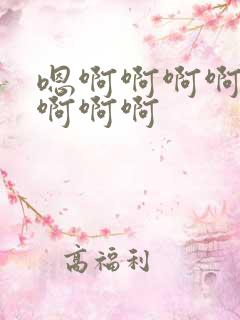 嗯啊啊啊啊
啊啊啊
高福利